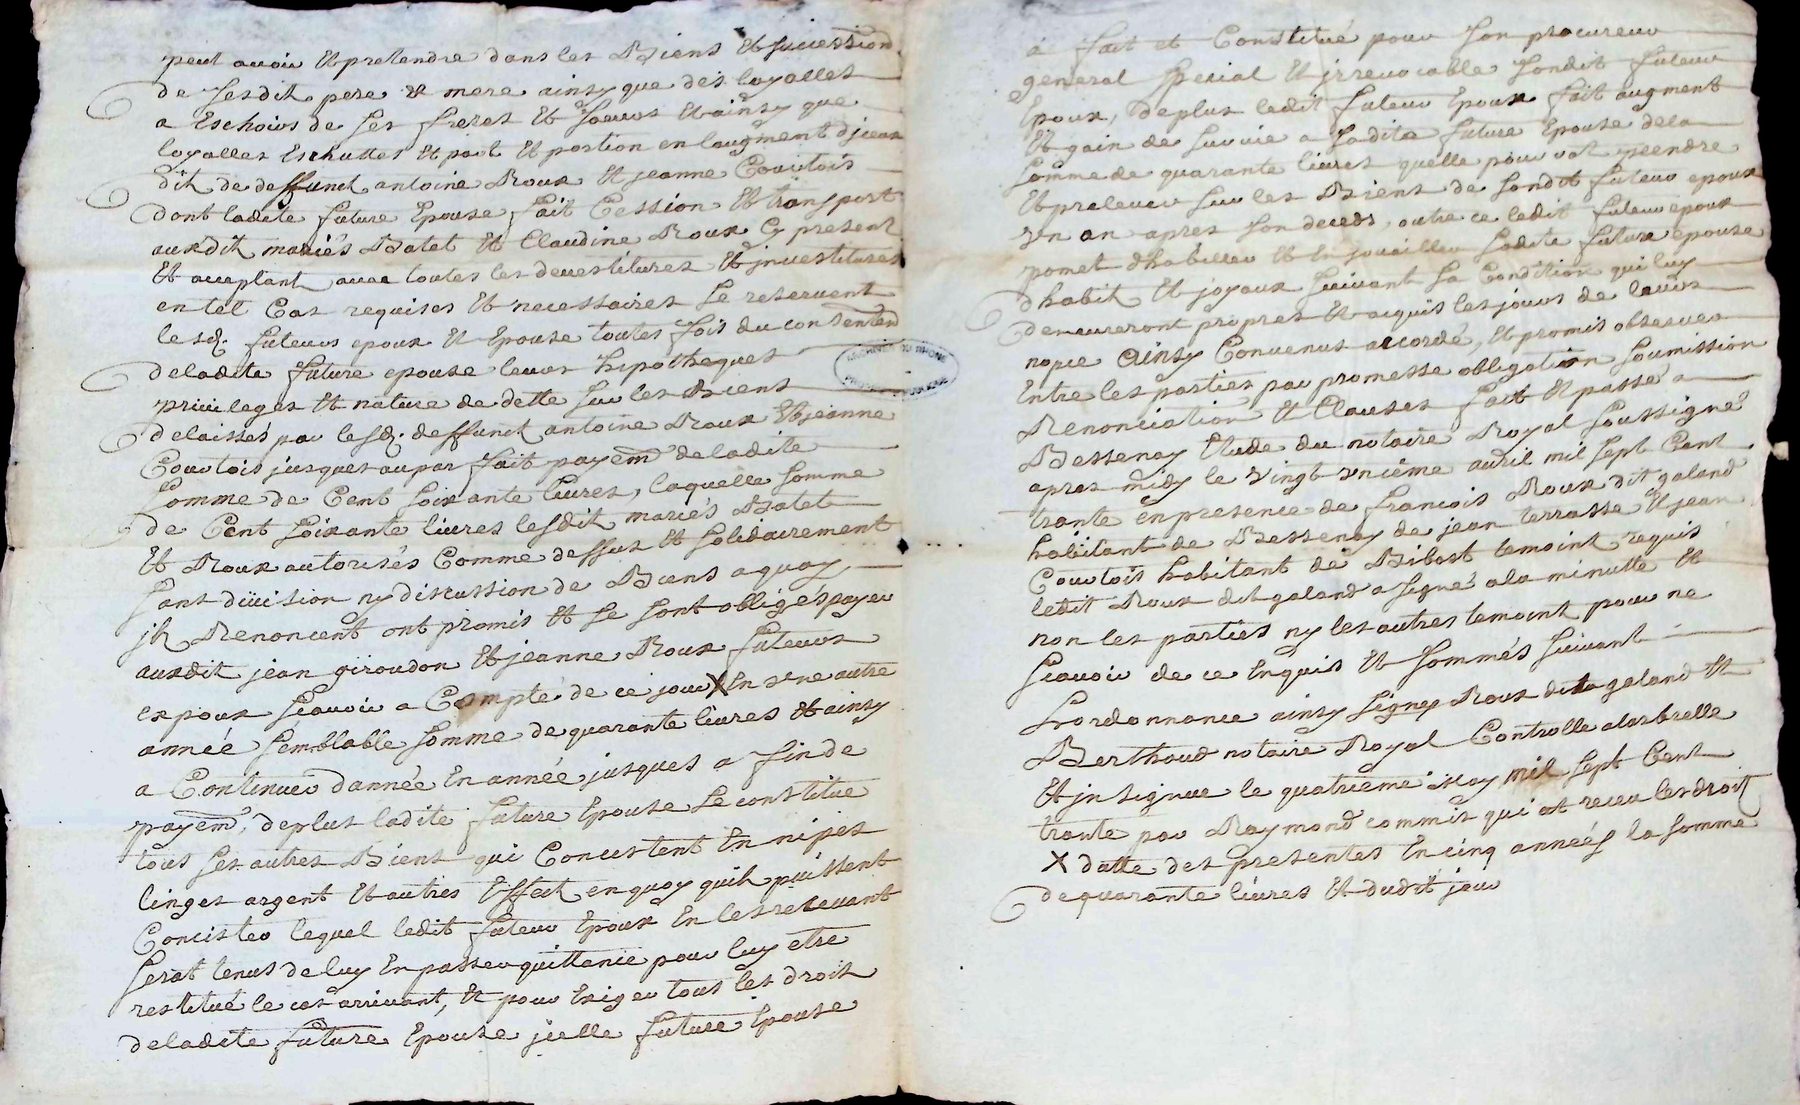 peut avoir Et pretendre dans les Biens Et Sucession
de Sesdit pere & mere ainsy que des loyalles
a Eschoirs de Ses freres Et Soeurs Et ainsy que
loyalles Eschuttes Et part Et portion en laugment
dit de deffunct antoine Roux Et jeanne Courtois
dont ladite future Epouse fait Cession Et transport
auxdit mariés Batet Et Claudine Roux Cy present
Et acceptant avec toutes les devestitures Et jnvestitures
en tel Cas requises Et necessaires Se reservent
lesd. futeurs epoux Et Epouse toutes fois du consenten
deladite future epouse leurs hipotheques
privileges Et nature de dette Sur les Biens
delaissés par lesd. deffunct antoine Roux Et jeanne
Courtois jusques au par fait payem deladite
Somme de Cent Soixante livres, laquelle Somme
de Cent Soixante livres lesdit mariés Batet
Et Roux autorisés Comme dessus Et Solidairement
Sans division ny discussion de Biens aquoy
jls Renoncent ont promis Et Se Sont obligés payer
auxdit jean giroudon Et jeanne Roux futeurs
expoux Scavoir a Compté de ce jour X En vne autre
année Semblable Somme de quarante livres Et ainsy
a Continuer dannée En année jusques a fin de
payem, deplus ladite future Epouse Se constitue
tous Ses autres Biens qui Concistent En nipes
linges argent Et autres Effect en quoy quils puissent
Concister lequel ledit futeur Epoux En les recevant
Serat tenus de luy En passer quittance pour luy etre
restitué le cas arrivant, Et pour Exiger tous les droit
deladite future Epouse jcelle future Epouse
a fait et Constitué pour Son procureur
general Special Et jrrevocable Sondit futeur
Epoux, Deplus ledit futeur Epoux fait augment
Et gain de Survie a Sadite future Epouse dela
Somme de quarante livres quelle pourrat prendre
Et prelever Sur les Biens de Sondit futeur epoux
vn an apres Son deceds, outre ce ledit futeur epoux
pomet dhabiller Et En jouailler Sadite future epouse
dhabit Et joyaux Suivant Sa Condition qui luy
demeureront propres Et acquis les jours de leurs
nopce Ainsy Convenus accordé, Et promis observer
Entre les parties par promesse obligation Soumission
Renonciation Et Clauses fait Et passé a
Bessenay Etude du notaire Royal Soussigné
apres midy le vingt vnième avril mil Sept Cent
trante en presence de francois Roux dit galand
habitant de Bessenay de jean terrasse Et jean
Courtois habitant de Bibost temoint requis
ledit Roux dit galand a Signé ala minutte Et
non les parties ny les autres temoint pour ne
Scavoir de ce Enquis Et Sommés Suivant
Lordonnance ainsy Signés Roux dit galand Et
Berthoud notaire Royal Controlle alarbrelle
Et jnsignue le quatrieme May mil Sept Cent
trante par Raymond commis qui at receu les droit
X datte des presentes En cinq années la Somme
de quarante livres Et dudit jour
ARCHIVES DU RHONE